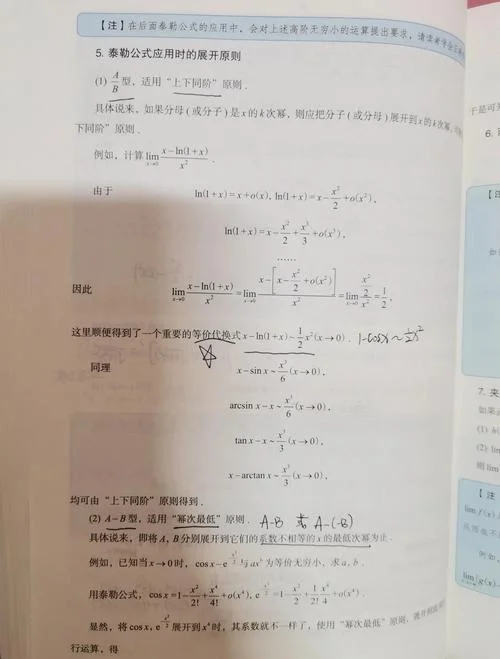 【注】在后面泰勒公式的应用中，会对上述高阶无穷小的运算提出要求，请读者学会
5. 泰勒公式应用时的展开原则
(1) A/B 型，适用"上下同阶"原则．
具体说来，如果分母(或分子)是x的k次幂，则应把分子(或分母)展开到x的k次幂，
下同阶"原则．
例如，计算 lim_{x→0} (x-ln(1+x))/x²．
由于 ln(1+x)=x+o(x), ln(1+x)=x-x²/2+o(x²),
ln(1+x)=x-x²/2+x³/3+o(x³),
……
因此 lim_{x→0} (x-ln(1+x))/x² = lim_{x→0} (x-[x-x²/2+o(x²)])/x² = lim_{x→0} (x²/2)/x² = 1/2,
这里顺便得到了一个重要的等价代换式 x-ln(1+x)~1/2x²(x→0)． 1-cosx~1/2x²
同理 x-sin x~x³/6(x→0),
arcsin x-x~x³/6(x→0),
tan x-x~x³/3(x→0),
x-arctan x~x³/3(x→0),
均可由"上下同阶"原则得到．
(2) A-B型，适用"幂次最低"原则． A-B 或 A-(-B)
具体说来，即将A,B分别展开到它们的系数不相等的x的最低次幂为止．
例如，已知当x→0时，cos x-e^{-x²/2}与ax^b为等价无穷小，求a,b．
用泰勒公式，cos x=1-x²/2!+x⁴/4!+o(x⁴), e^{-x²/2}=1-x²/2+1/2!·x⁴/4+o(x⁴)．
显然，将cos x, e^{-x²/2}展开到x⁴时，其系数就不一样了，使用"幂次最低"原则，
行运算，得
于是可
6.
【注
如
7. 夹
如果
(1)
(2) lim
则lim
【注
lim f(x)
lim|g(x)